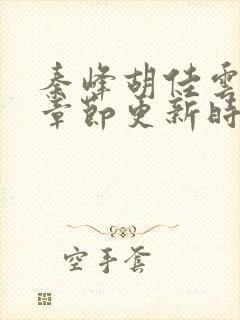 秦峰胡佳雲
章節更新時
空手套